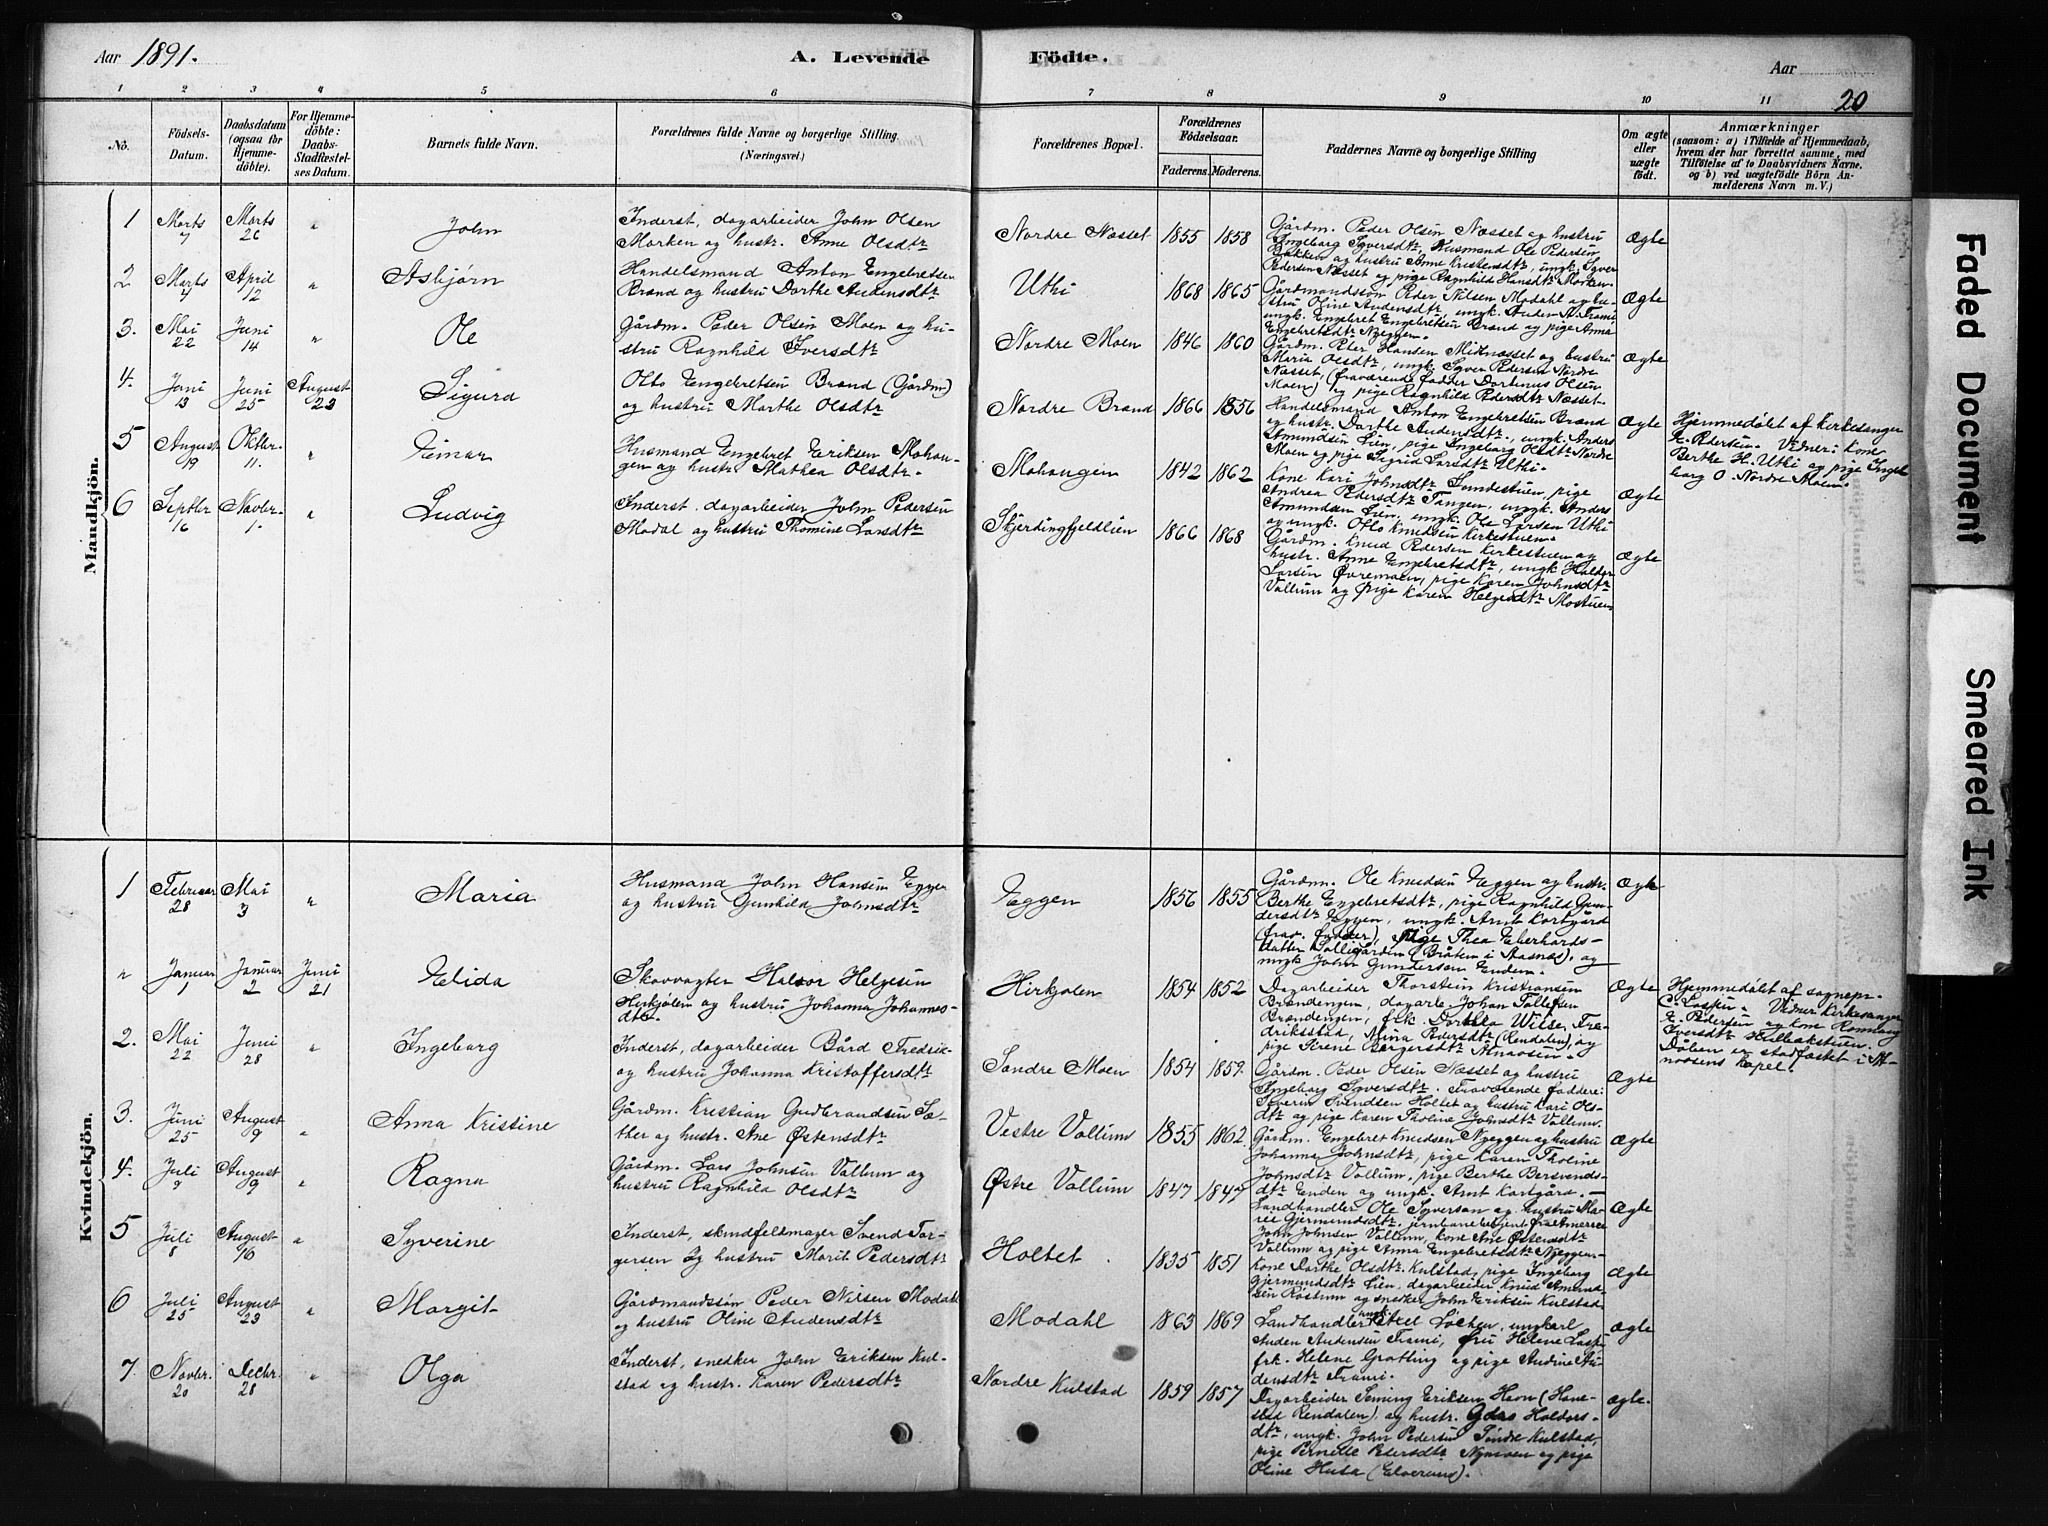 Aar 1891.
A. Levende
Födte.
Aar
20
1 2 3 4 5 6 7 8 9 10 11
No.
Födsels-
Datum.
Daabsdatum
(ogsaa for
Hjemme-
döbte).
For Hjemme-
döbte:
Daabs-
Stadfæstel-
ses Datum.
Barnets fulde Navn.
Forældrenes fulde Navne og borgerlige Stilling
(Næringsvei.)
Forældrenes Bopæl.
Forældrenes
Födselsaar.
Faderens. Moderens.
Faddernes Navne og borgerlige Stilling
Om ægte
eller
uægte
födt.
Anmærkninger
(saasom: a) i Tilfælde af Hjemmedaab,
hvem der har forrettet samme, med
Tilföielse af to Daabsvidners Navne.
og b) ved uægtefödte Börn An-
melderens Navn m. V.)
Mandkjön.
1 Marts 7 Marts 26 " John
Inderst, dagarbeider John Olsen
Morken og hustr. Anne Olsdtr
Nordre Næsset 1855 1858
Gårdm. Peder Olsen Næsset og hustru
Ingeborg Syversdtr, Husmand Ole Pedersen
Bakken og hustru Anne Kristensdtr, ungk. Syver
Pedersen Næsset og pige Ragnhild Hansdtr Morken.
Ægte
2 Marts 7 April 12 " Asbjørn
Handelsmand Anton Engebretsen
Brænd og hustru Dorthe Audensdtr
Uthi 1868 1865
Gårdmandssøn Peder Nilsen Modahl og hu-
stru Oline Audensdtr, ungk. Auden A. Trami
ungk. Engebret Engebretsen Brænd og pige Anna
Engebretsdtr Nyeggen.
Ægte
3. Mai 22 Juni 14 " Ole
Gårdm. Peder Olsen Moen og hu-
stru Ragnhild Iversdtr
Nordre Moen 1846 1860
Gårdm. Peter Hansen Midtnæsset og hustru
Maria Olsdtr, ungk. Syver Pedersen Nordre
Næsset, (fraværende fadder Dorthnus Olsen
Moen) og pige Ragnhild Pedersdtr Næsset.
Ægte
4. Juni 13 Juni 25 August 23 Sigurd
Otto Engebretsen Brænd (Gårdm)
og hustru Marthe Olsdtr
Nordre Brænd 1866 1856
Handelsmand Anton Engebretsen Brænd
og hustr. Dorthe Audensdtr., ungk. Anders
Amundsen Lien, pige Ingeborg Olsdtr Nordre
Moen og pige Sigrid Larsdtr Uthi.
Ægte
Hjemmedøbt af Kirkesanger
E. Pedersen. Vidner: Kone
Berthe H. Uthi og pige Inge-
borg O. Nordre Moen.
5 August 19 Oktbr. 11. " Eimar
Husmand Engebret Eriksen Mohau-
gen og hustr. Mathea Olsdtr.
Mohaugen 1842 1862
Kone Kari Johnsdtr Sundestuen, pige
Andrea Pedersdtr Tangen, ungk. Anders
Amundsen Lien, ungk. Ole Larsen Uthi
og ungk. Otto Knudsen Kirkestuen.
Ægte
6 Septbr 16 Novbr. 1. " Ludvig
Inderst, dagarbeider John Pedersen
Modal og hustru Thomine Larsdtr
Skjerdingfjeldlien 1866 1868
Gårdm. Knud Pedersen Kirkestuen og
hustr. Anne Engebretsdtr, ungk. Haldor
Larsen Øvremoen, pige Karen Johnsdtr
Vollum og pige Karen Helgesdtr Mostuen
Ægte
Kvindekjön.
1 Februar 28 Mai 3 " Maria
Husmand John Hansen Eggen
og hustru Gunhild Johnsdtr
Eggen 1856 1855
Gårdm. Ole Knudsen Eggen og hustr.
Berthe Engebretsdtr, pige Ragnhild Gun-
dersdtr Eggen, ungk. Arnt Kortgård
(frav. fadder), pige Thea Eberhards-
datter Volligården (Bråten i Aasnæs), og
ungk. John Gundersen Enden.
Ægte
" Januar 1 Januar 2 Juni 21 Elida
Skovvogter Halvor Helgesen
Hirkjølen og hustru Johanna Johannes-
dtr
Hirkjolen 1854 1852
Dagarbeider Thorstein Kristiansen
Brændengen, dagarb. Johan Tollefsen
Brændengen, frk. Dorthea Wilse, Fre-
driksstad, Mina Pedersdtr (Rendalen), og
pige Sirene Bergersdtr Atnaosen.
Ægte
Hjemmedøbt af sognepr.
C. Laspu. Vidner: Kirkesanger
E. Pedersen og kone Romnaug
Iversdtr Kulbakstuen.
Dåben er stadfæstet i At-
naosens kapel.
2. Mai 22 Juni 28 " Ingeborg
Inderst, dagarbeider Bård Fredrik-
og hustru Johanna Kristoffersdtr
Søndre Moen 1854 1859.
Gårdm. Peder Olsen Næsset og hustru
Ingeborg Syversdtr. Fraværende faddere:
Severin Svendsen Holtet og hustru Kari Ols-
dtr og pige Karen Tholine Johnsdtr Vollum.
Ægte
3. Juni 25 August 9 " Anna Kristine
Gårdm. Kristian Gudbrandsen Sæ-
ther og hustr. Ane Østensdtr
Vestre Vollum 1855 1862.
Gårdm. Engebret Knudsen Nyeggen og hustru
Johanna Johnsdtr, pige Karen Tholine
Johnsdtr Vollum, pige Berthe Bersvends-
dtr Enden og ungk. Arnt Kortgård.
Ægte
4. Juli 9 August 9 " Ragna
Gårdm. Lars Johnsen Vollum og
hustru Ragnhild Olsdtr
Østre Vollum 1847 1847
Landhandler Ole Syverson og hustru Ma-
rie Gjermundsdtr, jernbanebetjent fra Amerika
John Johnsen Vollum, kone Ane Østensdtr
Vollum og pige Anna Engebretsdtr Nyeggen.
Ægte
5 Juli 8 August 16 " Syverine
Inderst, skindfeldmager Svend Tor-
gersen og hustru Marit Pedersdtr
Holtet 1835 1851
Kone Dorthe Olsdtr. Kulstad, pige Ingeborg
Gjermundsdtr Lien, dagarbeider Knud Amund-
sen Rostum og snedker John Eriksen Kulstad
Ægte
6 Juli 25 August 23 " Margit
Gårdmandssøn Peder Nilsen Modahl
og hustru Oline Audensdtr
Modahl 1863 1869
Landhandler ungk. Ketel Lochen, ungkarl
Auden Audensen Trami, fru Helene Laspu
frk. Helene Grotting og pige Audine Au-
densdtr Trami.
Ægte
7. Novbr. 20 Decbr. 28 " Olga
Inderst, snedker John Eriksen Kul-
stad og hustr. Karen Pedersdtr
Nordre Kulstad 1859 1857
Dagarbeider Seming Eriksen Hson (Hane-
stad Rendalen) og hustr. Haldors-
dtr, ungk. John Pedersen Søndre Kulstad,
pige Pernille Pedersdtr Nymoen og pige
Oline Husa (Elverum).
Ægte.
Faded Document
Smeared Ink